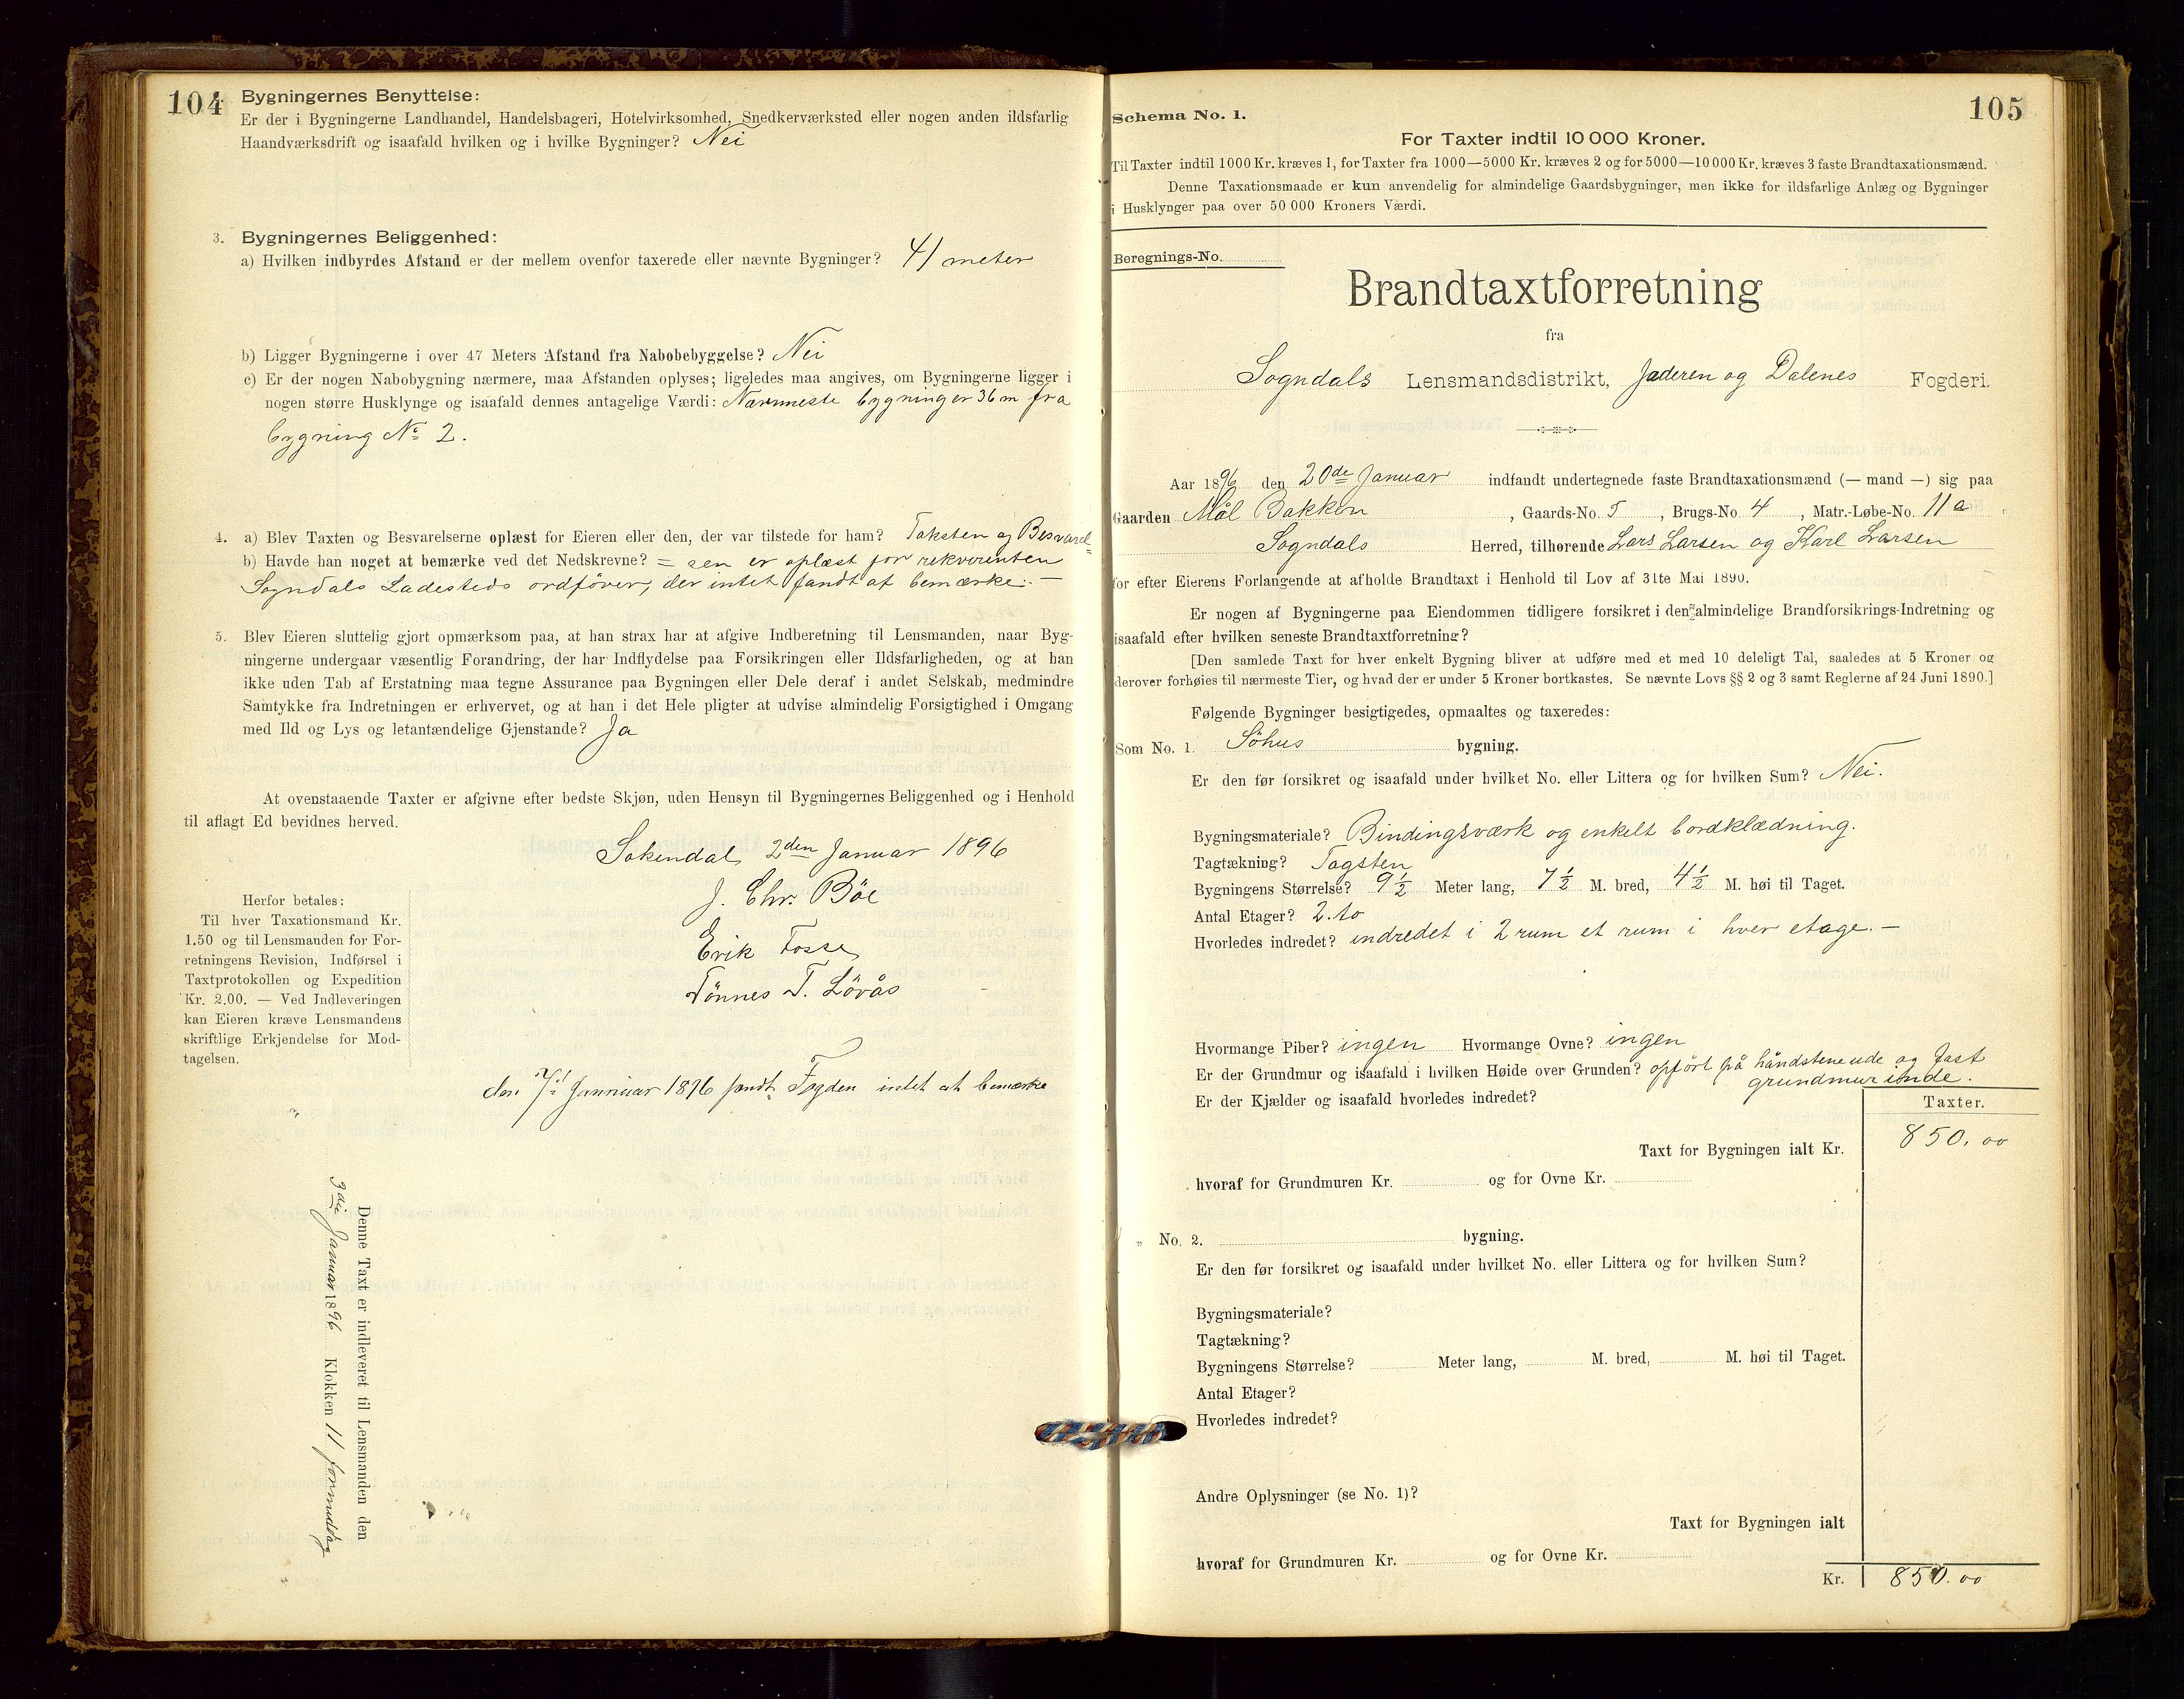 104
Bygningernes Benyttelse:
Er der i Bygningerne Landhandel, Handelsbageri, Hotelvirksomhed, Snedkerværksted eller nogen anden ildsfarlig
Haandværksdrift og isaafald hvilken og i hvilke Bygninger? Nei
3. Bygningernes Beliggenhed:
a) Hvilken indbyrdes Afstand er der mellem ovenfor taxerede eller nævnte Bygninger? 41 meter
b) Ligger Bygningerne i over 47 Meters Afstand fra Nabobebyggelse? Nei
c) Er der nogen Nabobygning nærmere, maa Afstanden oplyses; ligeledes maa angives, om Bygningerne ligger i
nogen større Husklynge og isaafald dennes antagelige Værdi: Nærmeste bygning er 36 m fra
bygning No 2.
4. a) Blev Taxten og Besvarelserne oplæst for Eieren eller den, der var tilstede for ham? Taksten og Besvarel=
b) Havde han noget at bemærke ved det Nedskrevne? = sen er oplæst for rekvirenten
Sogndals Ladesteds ordfører, der intet fandt at bemærke. —
5. Blev Eieren sluttelig gjort opmærksom paa, at han strax har at afgive Indberetning til Lensmanden, naar Byg-
ningerne undergaar væsentlig Forandring, der har Indflydelse paa Forsikringen eller Ildsfarligheden, og at han
ikke uden Tab af Erstatning maa tegne Assurance paa Bygningen eller Dele deraf i andet Selskab, medmindre
Samtykke fra Indretningen er erhvervet, og at han i det Hele pligter at udvise almindelig Forsigtighed i Omgang
med Ild og Lys og letantændelige Gjenstande? Ja
At ovenstaaende Taxter er afgivne efter bedste Skjøn, uden Hensyn til Bygningernes Beliggenhed og i Henhold
til aflagt Ed bevidnes herved.
Sokendal 2den Januar 1896
J. Chr. Böe
Erik Fosse
Tönnes T. Lövås
Herfor betales:
Til hver Taxationsmand Kr.
1.50 og til Lensmanden for For-
retningens Revision, Indførsel i
Taxtprotokollen og Expedition
Kr. 2.00. — Ved Indleveringen
kan Eieren kræve Lensmandens
skriftlige Erkjendelse for Mod-
tagelsen.
den 7/1 Januar 1896 fandt Fogden intet at bemærke
Denne Taxt er indleveret til Lensmanden den
3die Januar 1896 Klokken 11 formiddag
105
Schema No. 1.
For Taxter indtil 10 000 Kroner.
Til Taxter indtil 1000 Kr. kræves 1, for Taxter fra 1000—5000 Kr. kræves 2 og for 5000—10 000 Kr. kræves 3 faste Brandtaxationsmænd.
Denne Taxationsmaade er kun anvendelig for almindelige Gaardsbygninger, men ikke for ildsfarlige Anlæg og Bygninger
i Husklynger paa over 50 000 Kroners Værdi.
Beregnings-No.
Brandtaxtforretning
fra
Sogndals Lensmandsdistrikt, Jæderen og Dalenes Fogderi.
Aar 1896 den 20de Januar indfandt undertegnede faste Brandtaxationsmænd (— mand —) sig paa
Gaarden Mål Bakken, Gaards-No. 5, Brugs-No. 4, Matr.-Løbe-No. 11a
Sogndals Herred, tilhørende Lars Larsen og Karl Larsen
for efter Eierens Forlangende at afholde Brandtaxt i Henhold til Lov af 31te Mai 1890.
Er nogen af Bygningerne paa Eiendommen tidligere forsikret i den almindelige Brandforsikrings-Indretning og
isaafald efter hvilken seneste Brandtaxtforretning?
[Den samlede Taxt for hver enkelt Bygning bliver at udføre med et med 10 deleligt Tal, saaledes at 5 Kroner og
derover forhøies til nærmeste Tier, og hvad der er under 5 Kroner bortkastes. Se nævnte Lovs §§ 2 og 3 samt Reglerne af 24 Juni 1890.]
Følgende Bygninger besigtigedes, opmaaltes og taxeredes:
Som No. 1. Söhus bygning.
Er den før forsikret og isaafald under hvilket No. eller Littera og for hvilken Sum? Nei.
Bygningsmateriale? Bindingsværk og enkelt bordklædning.
Tagtækning? Tagsten
Bygningens Størrelse? 9½ Meter lang, 7½ M. bred, 4½ M. høi til Taget.
Antal Etager? 2.to
Hvorledes indredet? indredet i 2 rum et rum i hver etage. —
Hvormange Piber? ingen Hvormange Ovne? ingen
Er der Grundmur og isaafald i hvilken Høide over Grunden? opført på håndstene ude og fast
grundmur inde.
Er der Kjælder og isaafald hvorledes indredet?
Taxter.
Taxt for Bygningen ialt Kr. 850.00
hvoraf for Grundmuren Kr. og for Ovne Kr.
„ No. 2. bygning.
Er den før forsikret og isaafald under hvilket No. eller Littera og for hvilken Sum?
Bygningsmateriale?
Tagtækning?
Bygningens Størrelse? Meter lang, M. bred, M. høi til Taget.
Antal Etager?
Hvorledes indredet?
Andre Oplysninger (se No. 1)?
Taxt for Bygningen ialt
hvoraf for Grundmuren Kr. og for Ovne Kr.
Kr. 850.00